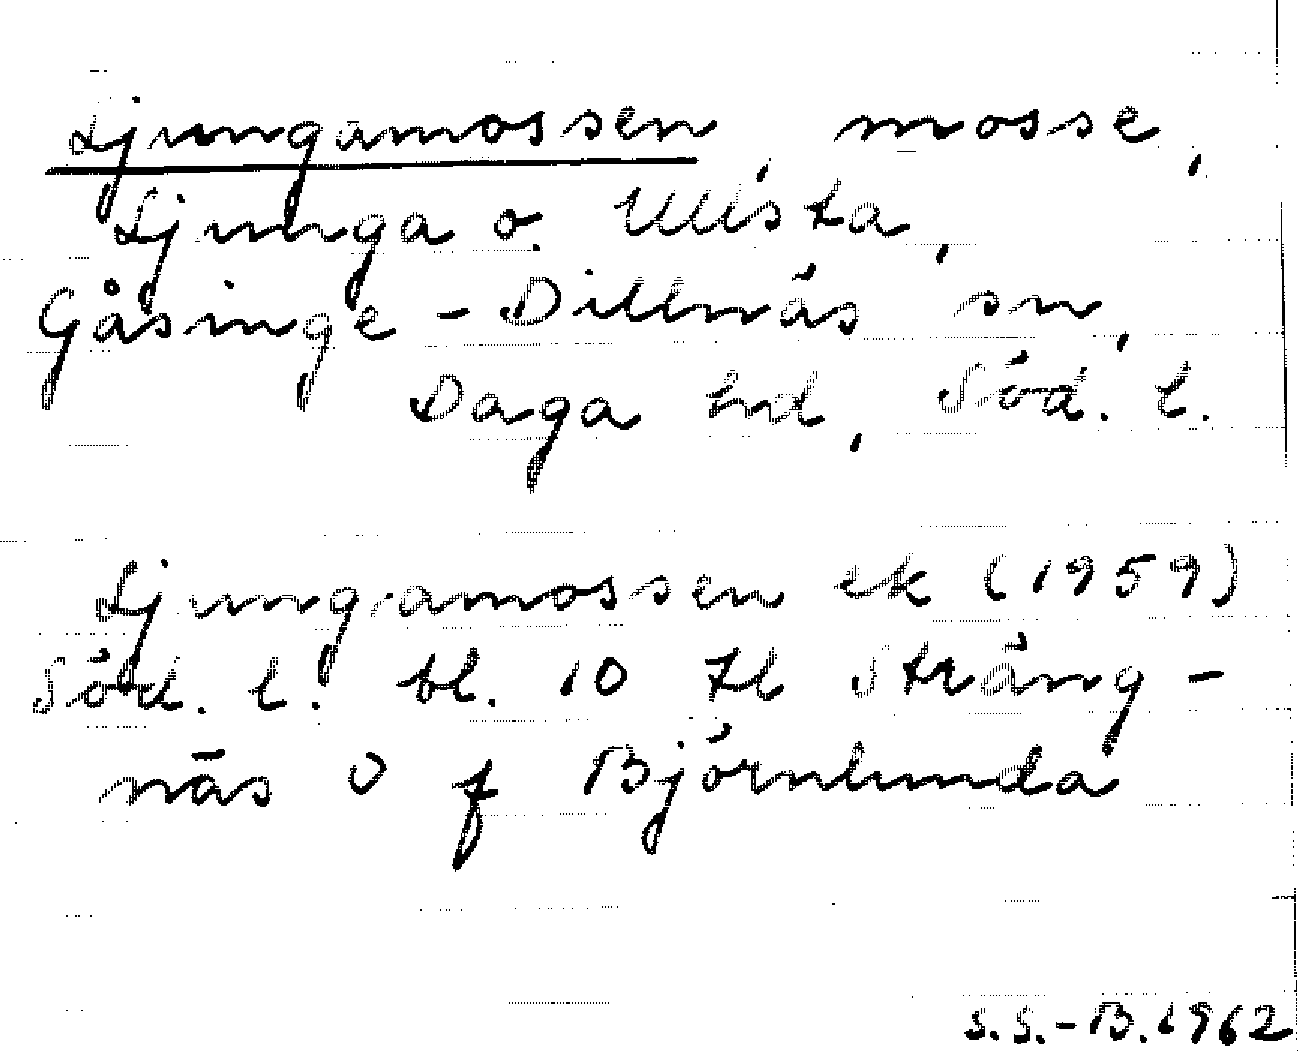 Ljungamossen, mosse,
Ljunga o. Ullsta,
Gåsinge - Dillnäs sn,
Daga hd, Söd. l.
Ljungamossen ek (1959)
Söd. l. bl. 10 Tl Sträng-
näs O f Björnlunda
S.S.-B. 1962